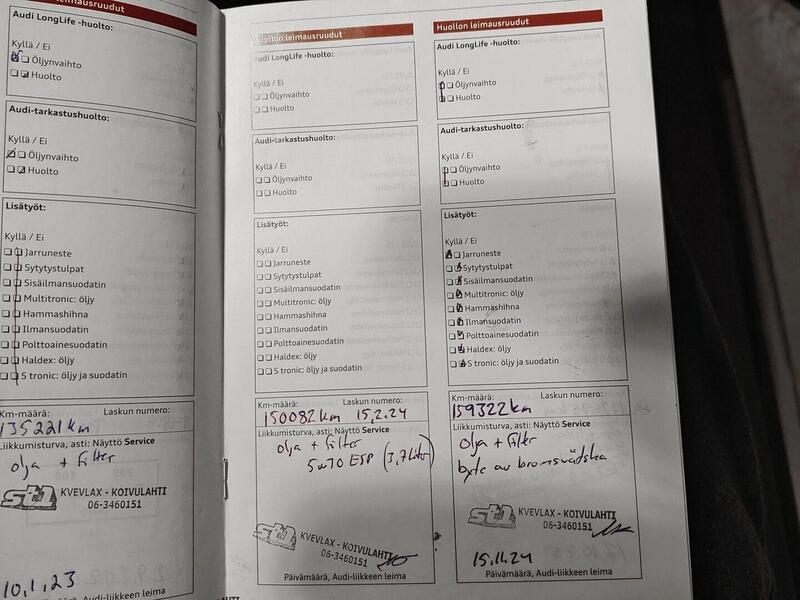 leimausruudut
Audi LongLife -huolto:
Kyllä / Ei
Öljynvaihto
Huolto
Audi-tarkastushuolto:
Kyllä / Ei
Öljynvaihto
Huolto
Lisätyöt:
Kyllä / Ei
Jarruneste
Sytytystulpat
Sisäilmansuodatin
Multitronic: öljy
Hammashihna
Ilmansuodatin
Polttoainesuodatin
Haldex: öljy
S tronic: öljy ja suodatin
Km-määrä: Laskun numero:
135221km
Liikkumisturva, asti: Näyttö Service
olja + filter
st1 KVEVLAX - KOIVULAHTI
06-3460151
10,1,23
Audi-liikkeen leima
Huollon leimausruudut
Audi LongLife -huolto:
Kyllä / Ei
Öljynvaihto
Huolto
Audi-tarkastushuolto:
Kyllä / Ei
Öljynvaihto
Huolto
Lisätyöt:
Kyllä / Ei
Jarruneste
Sytytystulpat
Sisäilmansuodatin
Multitronic: öljy
Hammashihna
Ilmansuodatin
Polttoainesuodatin
Haldex: öljy
S tronic: öljy ja suodatin
Km-määrä: Laskun numero:
150082km 15,2.24
Liikkumisturva, asti: Näyttö Service
olja + filter
5w30 ESP (3,7 liter)
st1 KVEVLAX - KOIVULAHTI
06-3460151
Päivämäärä, Audi-liikkeen leima
Huollon leimausruudut
Audi LongLife -huolto:
Kyllä / Ei
Öljynvaihto
Huolto
Audi-tarkastushuolto:
Kyllä / Ei
Öljynvaihto
Huolto
Lisätyöt:
Kyllä / Ei
Jarruneste
Sytytystulpat
Sisäilmansuodatin
Multitronic: öljy
Hammashihna
Ilmansuodatin
Polttoainesuodatin
Haldex: öljy
S tronic: öljy ja suodatin
Km-määrä: Laskun numero:
159322km
Liikkumisturva, asti: Näyttö Service
olja + filter
byte av bromsvätska
st1 KVEVLAX - KOIVULAHTI
06-3460151
15,11.24
Päivämäärä, Audi-liikkeen leima